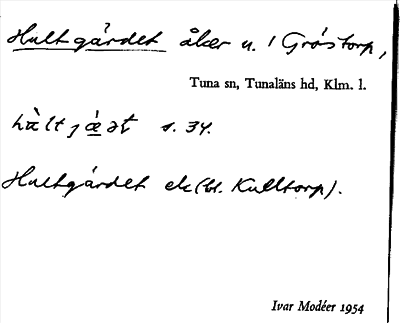 Hultgärdet åker n. 1 Gröstorp,
Tuna sn, Tunaläns hd, Klm. l.
s. 34.
Hultgärdet ek (bl. Kulltorp).
Ivar Modéer 1954